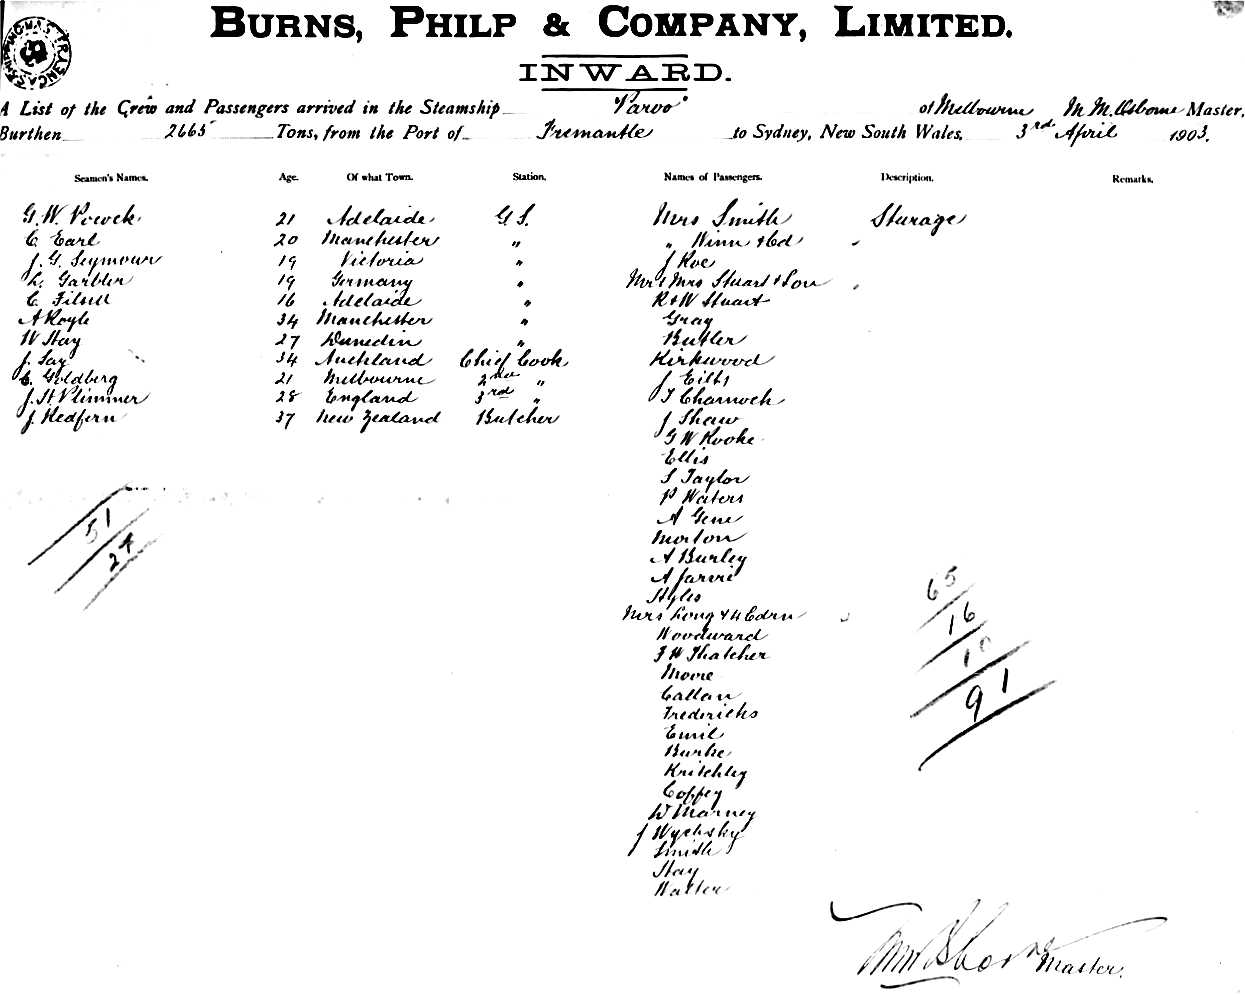 BURNS, PHILP & COMPANY, LIMITED.
INWARD.
A List of the Crew and Passengers arrived in the Steamship "Paroo" of Melbourne M. M. Osborne Master,
Burthen 2665 Tons, from the Port of Fremantle to Sydney, New South Wales, 3rd April 1903.
Seamen's Names. Age. Of what Town. Station. Names of Passengers. Description. Remarks.
G. W. Pocock 21 Adelaide G S. Mrs Smith Sturage
C. Earl 20 Manchester " " Winn & Cd
J. G. Seymour 19 Victoria " J Roe
L. Garbler 19 Germany " Mr & Mrs Stuart & Son
C. Filsell 16 Adelaide " R & W Stuart
A Royle 34 Manchester " Gray
W Hay 27 Dunedin " Butler
J. Say 34 Auckland Chief Cook Kirkwood
C. Goldberg 21 Melbourne 2nd " J Eilts
J. St Plimmer 28 England 3rd " T Charnock
J. Hedfern 37 New Zealand Butcher J Shaw
G W Rooke
Ellis
S Taylor
P Waters
A Gene
Morton
A Burley
A Jarvie
Styles
Mrs Long & 4 Cdrn
Woodward
F W Thatcher
Moore
Callan
Fredericks
Emil
Burke
Kritchley
Coffey
W Marney
J Wychsky
Smith
Hay
Walter
51
27
65
16
10
91
Master.